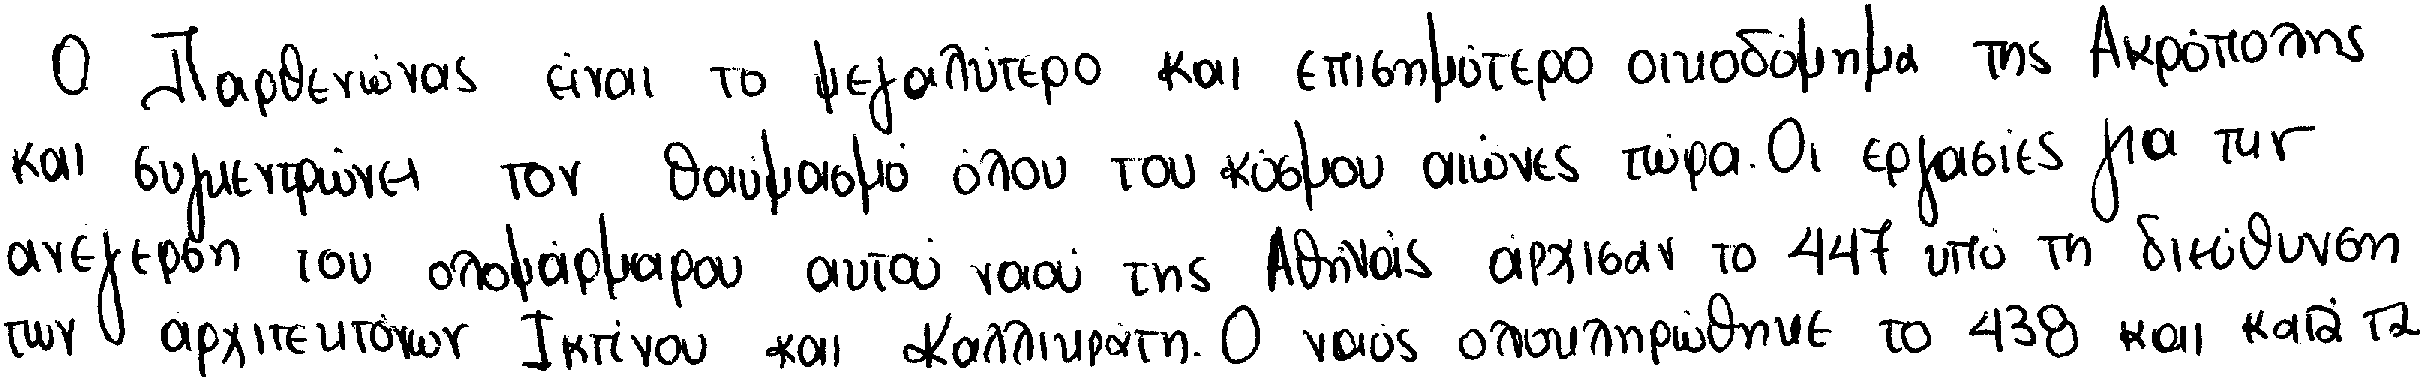 Ο Παρθενώνας είναι το μεγαλύτερο και επισημότερο οικοδόμημα της Ακρόπολης
και συγκεντρώνει τον θαυμασμό όλου του κόσμου αιώνες τώρα. Οι εργασίες για την
ανέγερση του ολομάρμαρου αυτού ναού της Αθηνάς άρχισαν το 447 υπό τη διεύθυνση
των αρχιτεκτόνων Ικτίνου και Καλλικράτη. Ο ναός ολοκληρώθηκε το 438 και κατά τα